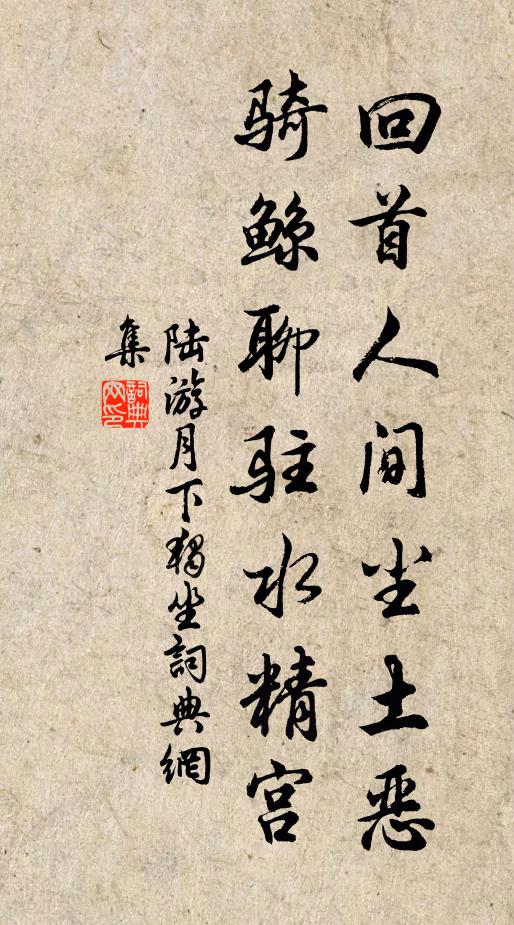 回首人间尘土恶
骑鲸聊驻水精宫
陆游月下獨坐詞典網
集
詞典
网印